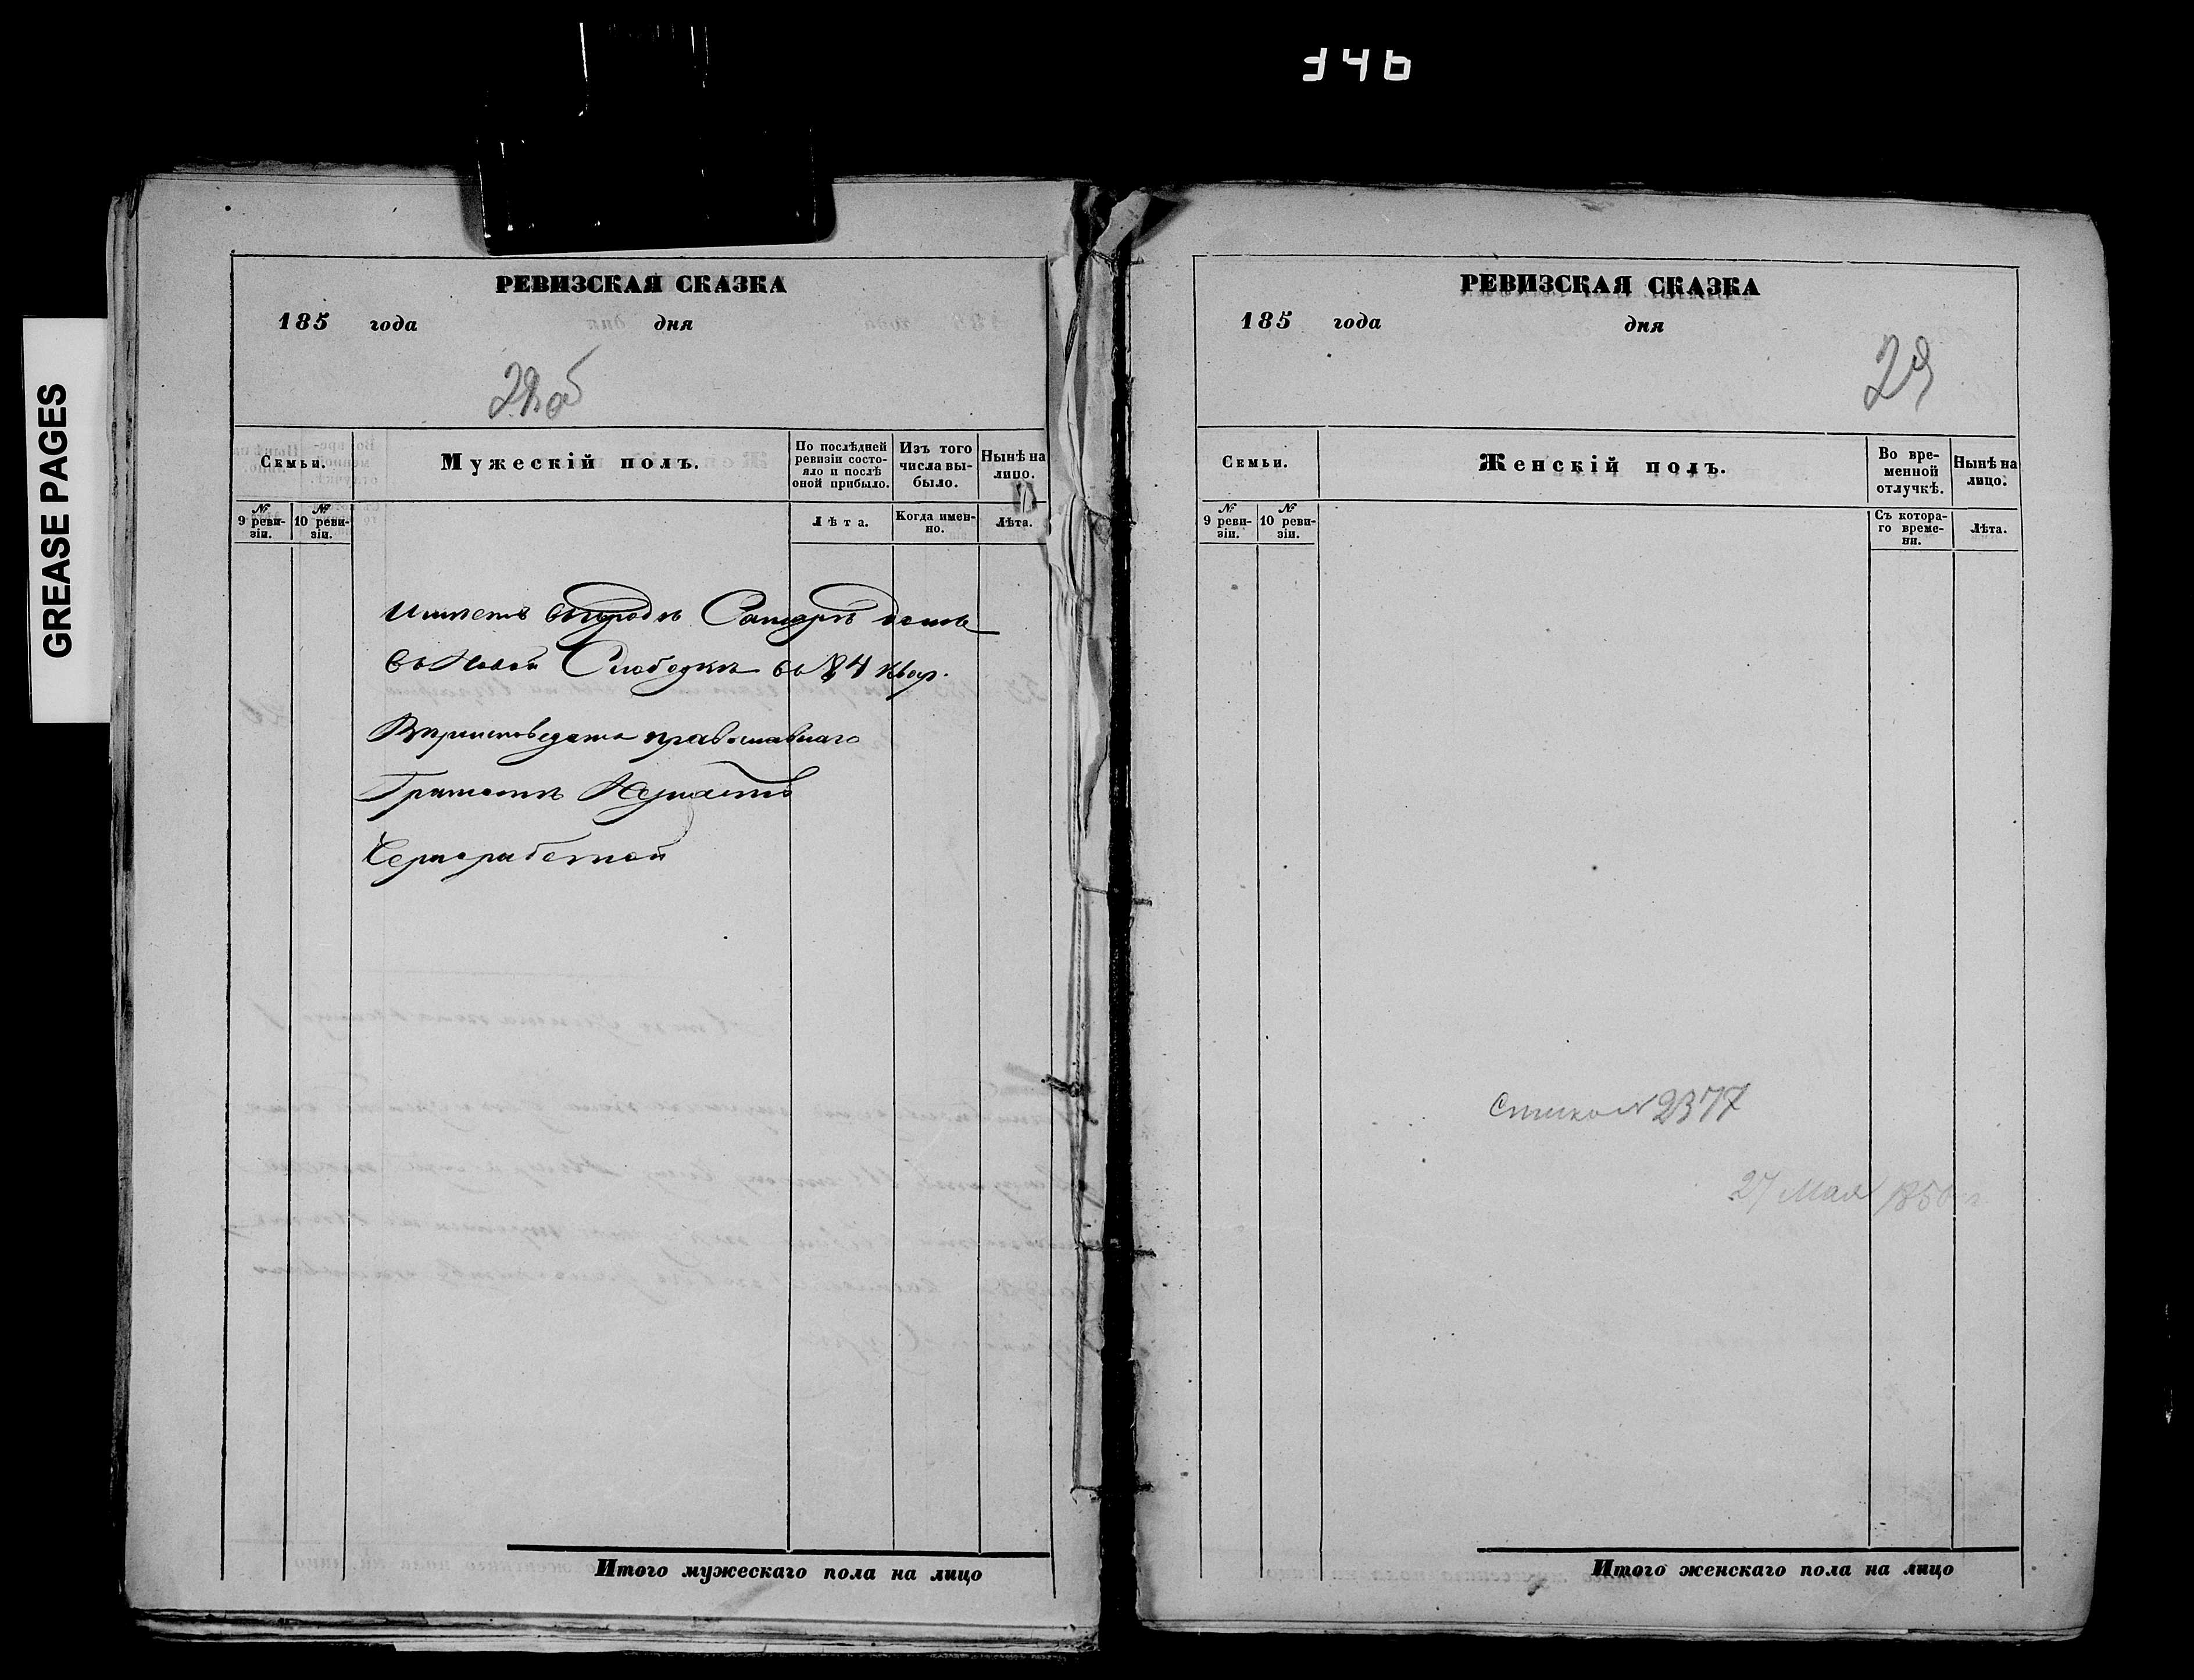 346
GREASE PAGES
РЕВИЗСКАЯ СКАЗКА
185 года дня
28об
Семьи.
Мужескій полъ.
По послѣдней ревизіи состо-
яло и послѣ
оной прибыло.
Изъ того
числа вы-
было.
Нынѣ на
лицо.
№
9 реви-
зіи.
№
10 реви-
зіи.
Лѣта.
Когда имен-
но.
Лѣта.
Имѣетъ въ городѣ Самарѣ домъ
въ Новой Слободкѣ въ 84 квар.
Вѣроисповеданія православнаго
Грамотѣ Неумѣетъ
Чернорабочей
Итого мужескаго пола на лицо
РЕВИЗСКАЯ СКАЗКА
185 года дня
29
Семьи.
Женскій полъ.
Во вре-
менной
отлучкѣ.
Нынѣ на
лицо.
№
9 реви-
зіи.
№
10 реви-
зіи.
Съ котора-
го време-
ни.
Лѣта.
№ 2377
27 Мая 1850 г
Итого женскаго пола на лицо